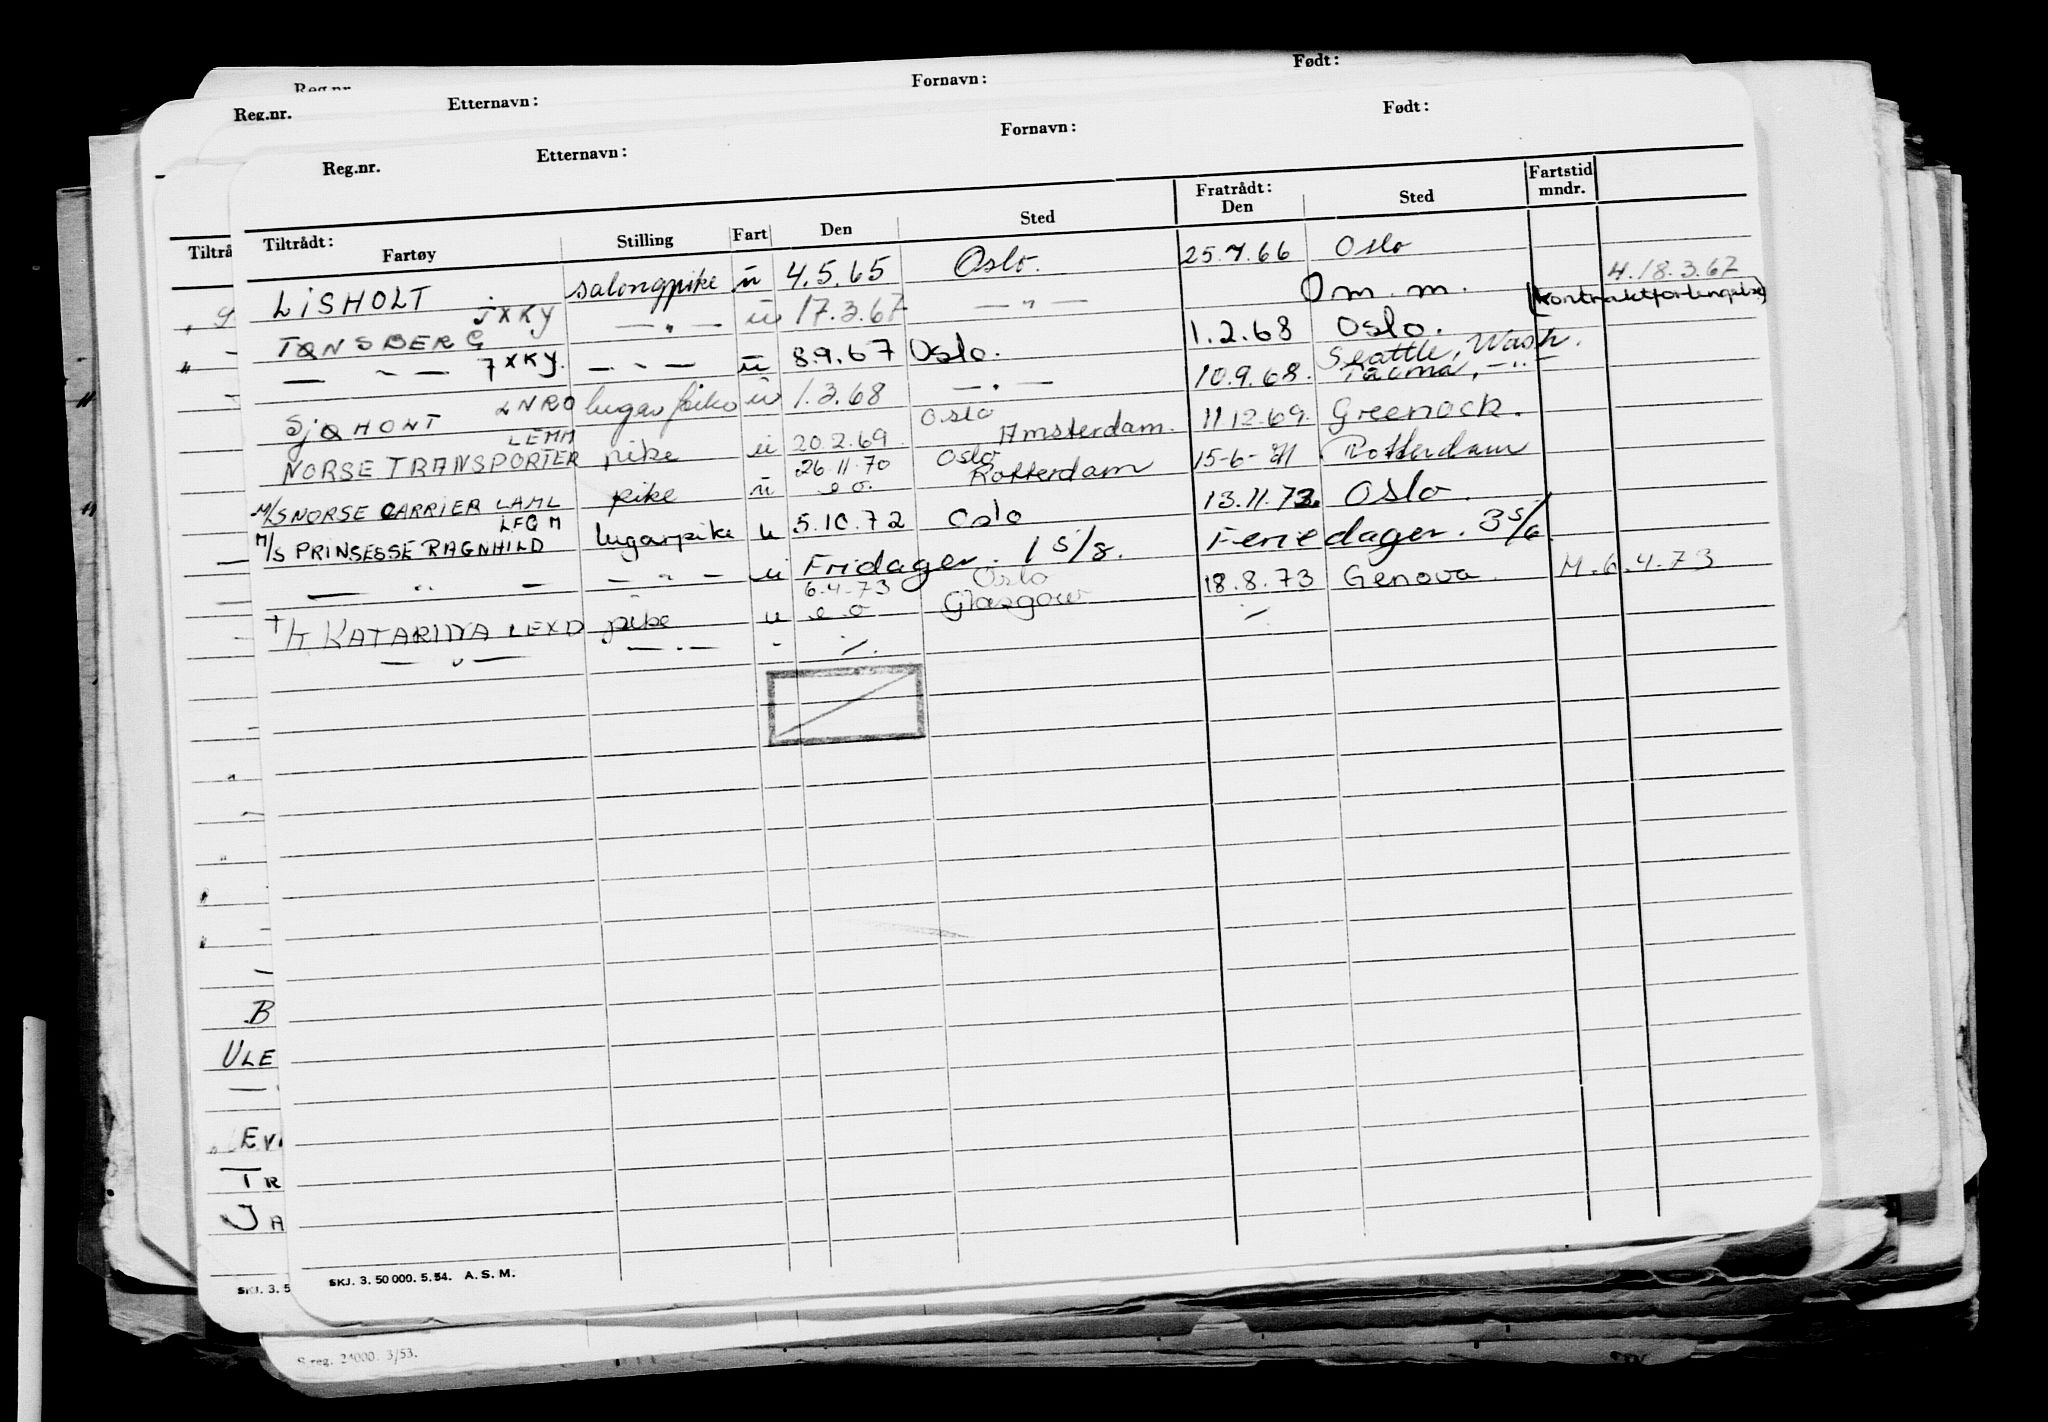 Reg.nr.
Fornavn:
Født:
Reg.nr.
Etternavn:
Fornavn:
Født:
Reg.nr.
Etternavn:
Tiltrådt:
Fartøy
Stilling
Fart
Den
Sted
Fratrådt:
Den
Sted
Fartstid
mndr.
LISHOLT salongpike u 4.5.65 Oslo. 25.7.66 Oslo
TØNSBERG JXKY — " — u 17.3.67 — " — Om. m. 4.18.3.67
(kontraktforlengelse)
— " — JXKY. — " — u 8.9.67 Oslo. 1.2.68 Oslo.
SJØHONT LNRO lugarpike u 1.3.68 — " — 10.9.68. Seattle, Wash.
Tacoma, — " —
NORSE TRANSPORTER LEMM pike u 20.2.69 Oslo
Amsterdam. 11.12.69. Greenock.
M/S NORSE CARRIER LAML pike u 26.11.70 Oslo
e o. Rotterdam 15-6-71 Rotterdam
M/S PRINSESSE RAGNHILD LFOM lugarpike u 5.10.72 Oslo 13.11.72 Oslo.
— " — — " — u Fridager. 1 5/8. Feriedager. 3 5/6.
T/T. KATARINA LEXD pike u 6.4.73 Oslo
e o Glasgow 18.8.73 Genova. M. 6.4.73
— " — — " — " ⁒. ⁒
Tiltrå
B
ULE
EV
TR
JA
SKJ. 3. 50 000. 5. 54. A. S. M.
SKJ. 3. 5
S reg. 24000. 3/53.